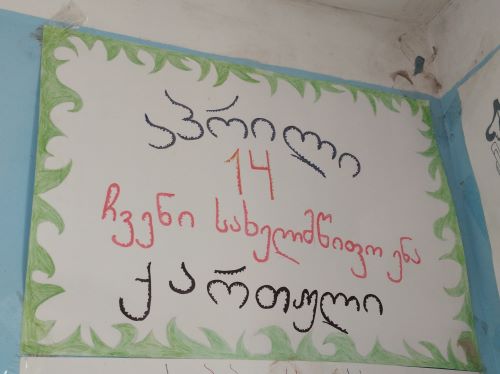 აპრილი
14
ჩვენი სახელმწიფო ენა
ქართული